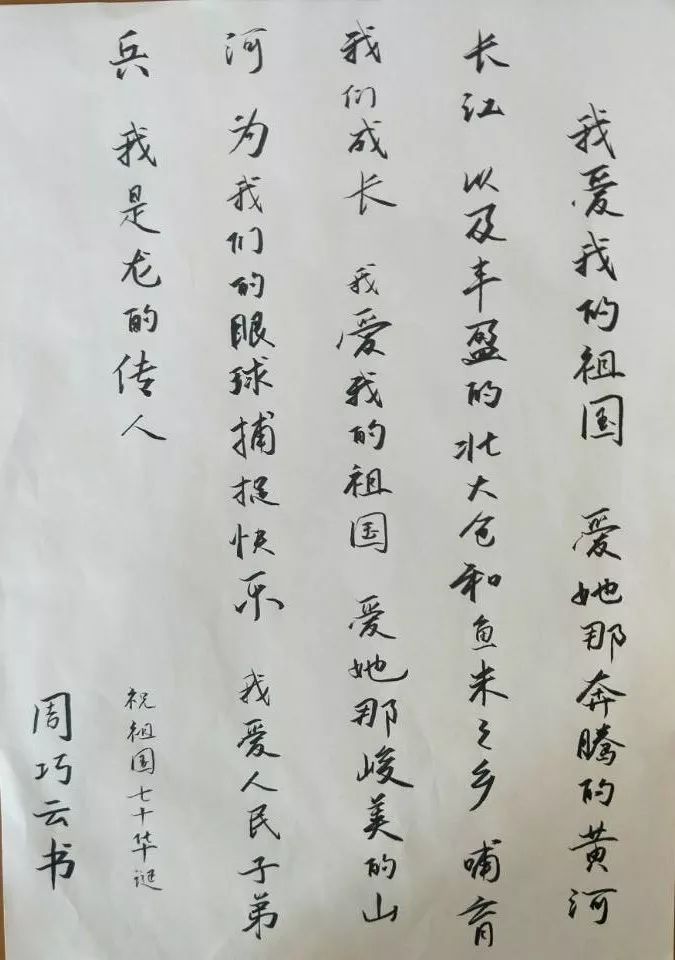 我爱我的祖国 爱她那奔腾的黄河
长江 以及丰盈的北大仓和鱼米之乡 哺育
我们成长 我爱我的祖国 爱她那峻美的山
河 为我们的眼球捕捉快乐 我爱人民子弟
兵 我是龙的传人
祝祖国七十华诞
周巧云书